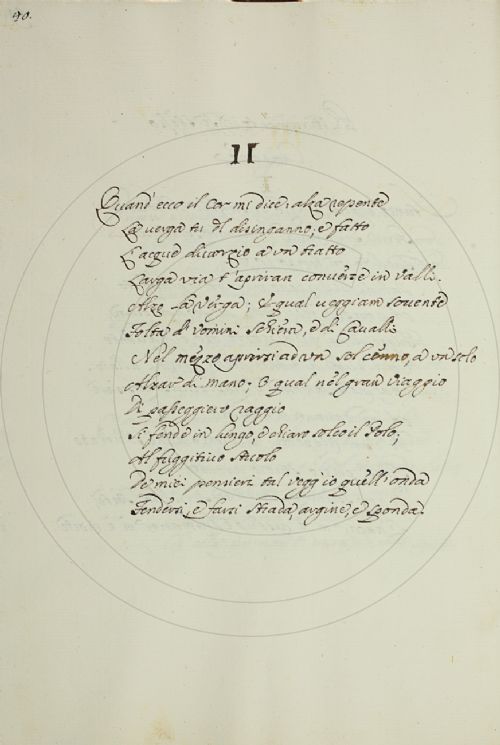 90.
II
Quand' ecco il Cor mi dice: alza repente
La verga tu del disinganno, e fatto
L'acque divorzio a un tratto
Larga via t' apriran converse in valli.
Alzo la verga; E qual veggiam sovente
Folta d' uomini schiera, e di Cavalli
Nel mezzo aprirsi ad un sol cenno, a un solo
Alzar di mano; O qual nel gran viaggio
Di passeggiero raggio
Si fende in lungo, e chiaro solco il Polo;
Al fuggitivo stuolo
De miei pensieri tal vegg'io quell' onda
Fendersi, e farsi strada, argine, e sponda.